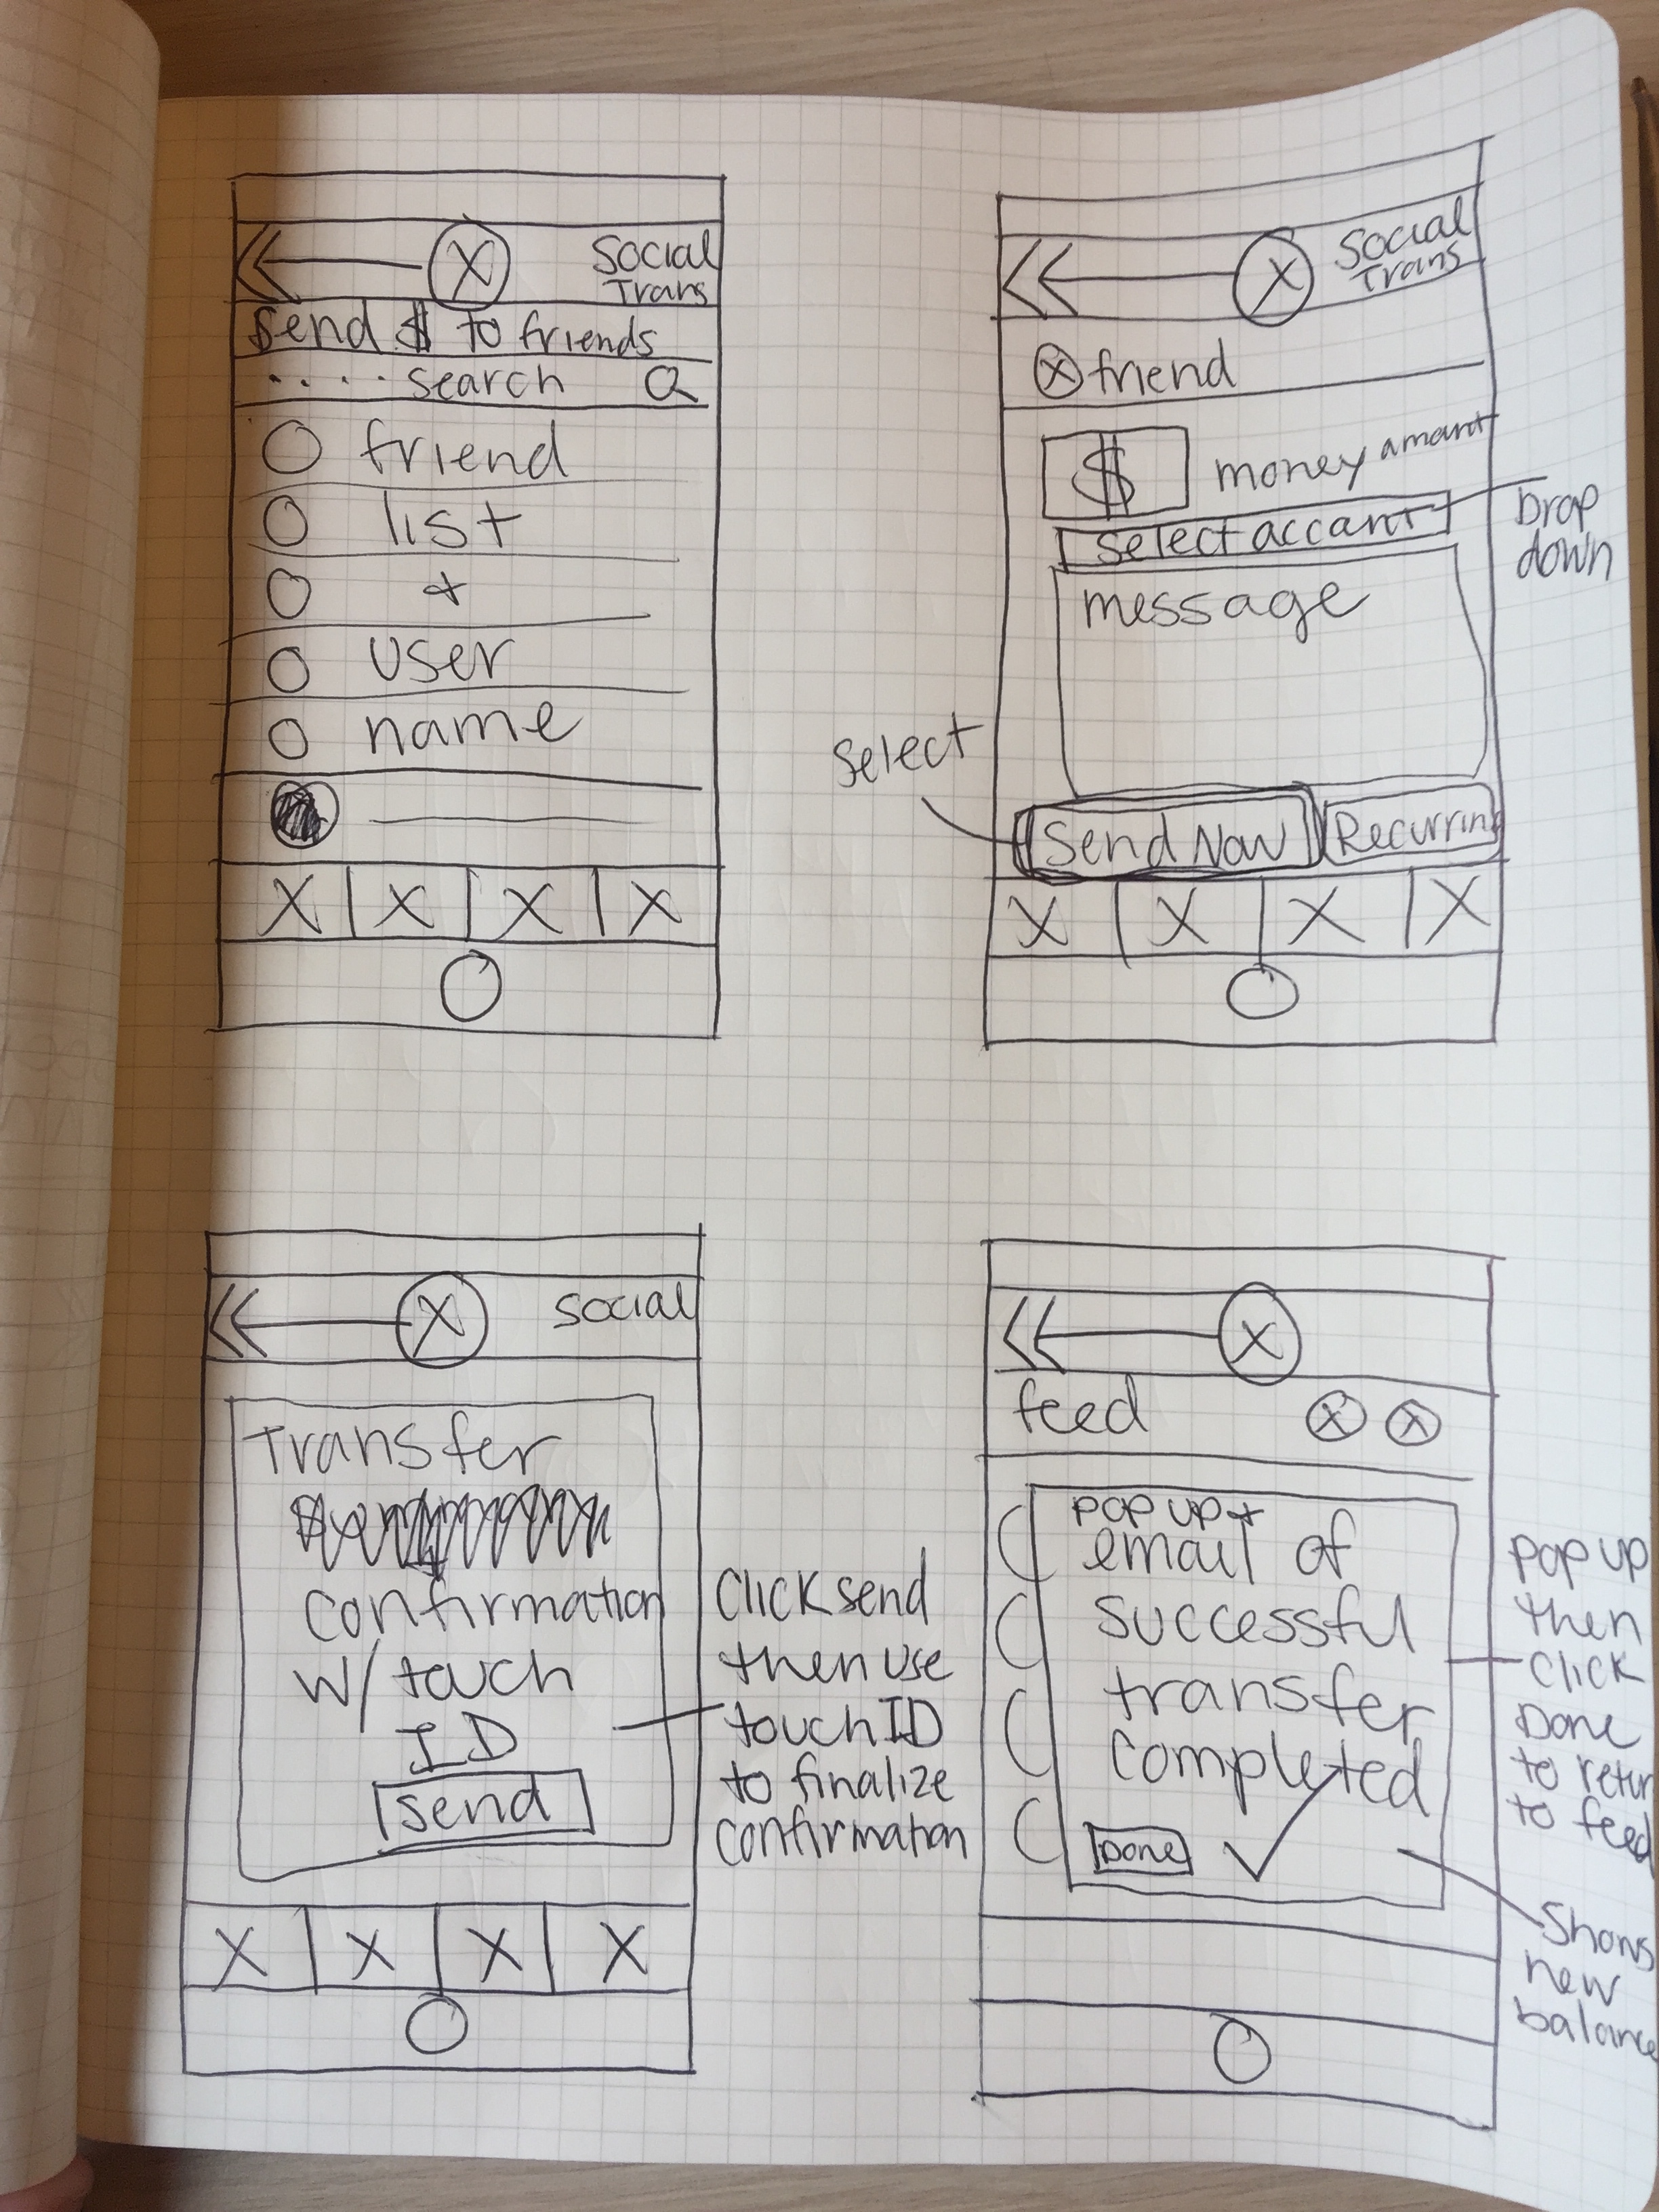 Social
Trans
Send $ to friends
.... search
friend
list
+
user
name
X X X X
X
Social
Trans
X
X friend
$ money amount
Select account
Drop
down
message
Select
Send Now
Recurring
X X X X
Social
X
Transfer
confirmation
w/ touch
ID
Send
Click send
then use
touch ID
to finalize
confirmation
X X X X
X
feed X X
POP UP +
email of
successful
transfer
completed
Done
POP UP
then
click
Done
to return
to feed
Shows
new
balance